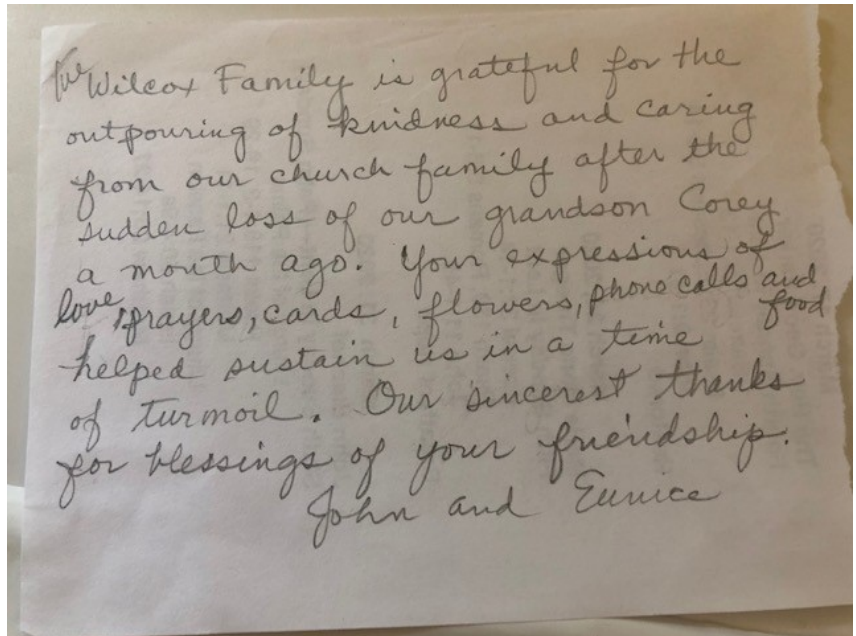 The Wilcox Family is grateful for the
outpouring of kindness and caring
from our church family after the
sudden loss of our grandson Corey
a month ago. Your expressions of
love, prayers, cards, flowers, phone calls and food
helped sustain us in a time
of turmoil. Our sincerest thanks
for blessings of your friendship.
John and Eunice